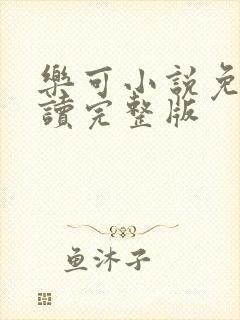 樂可小說免
讀完整版
鱼沐子